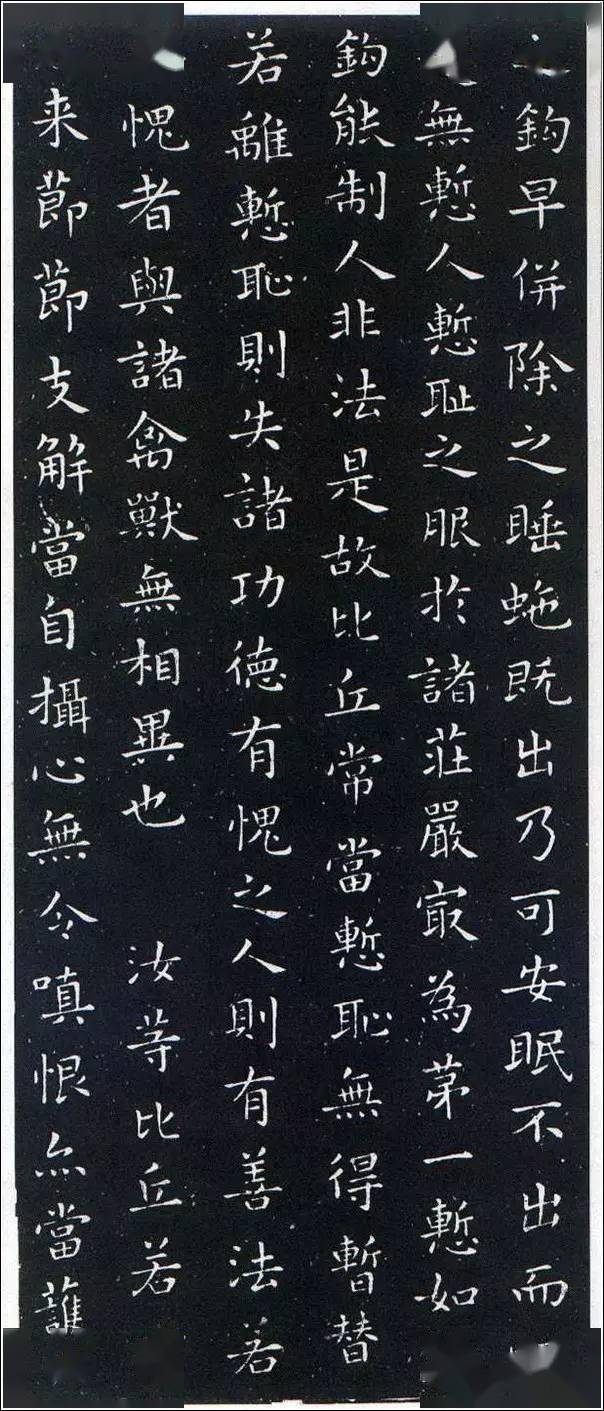 鈎早併除之睡虵既出乃可安眠不出而
無慙人慙耻之服於諸莊嚴㝡為苐一慙如
鈎能制人非法是故比丘常當慙恥無得暫替
若離慙恥則失諸功德有愧之人則有善法若
愧者與諸禽獸無相異也　汝等比丘若
来莭莭支解當自攝心無令嗔恨亦當護